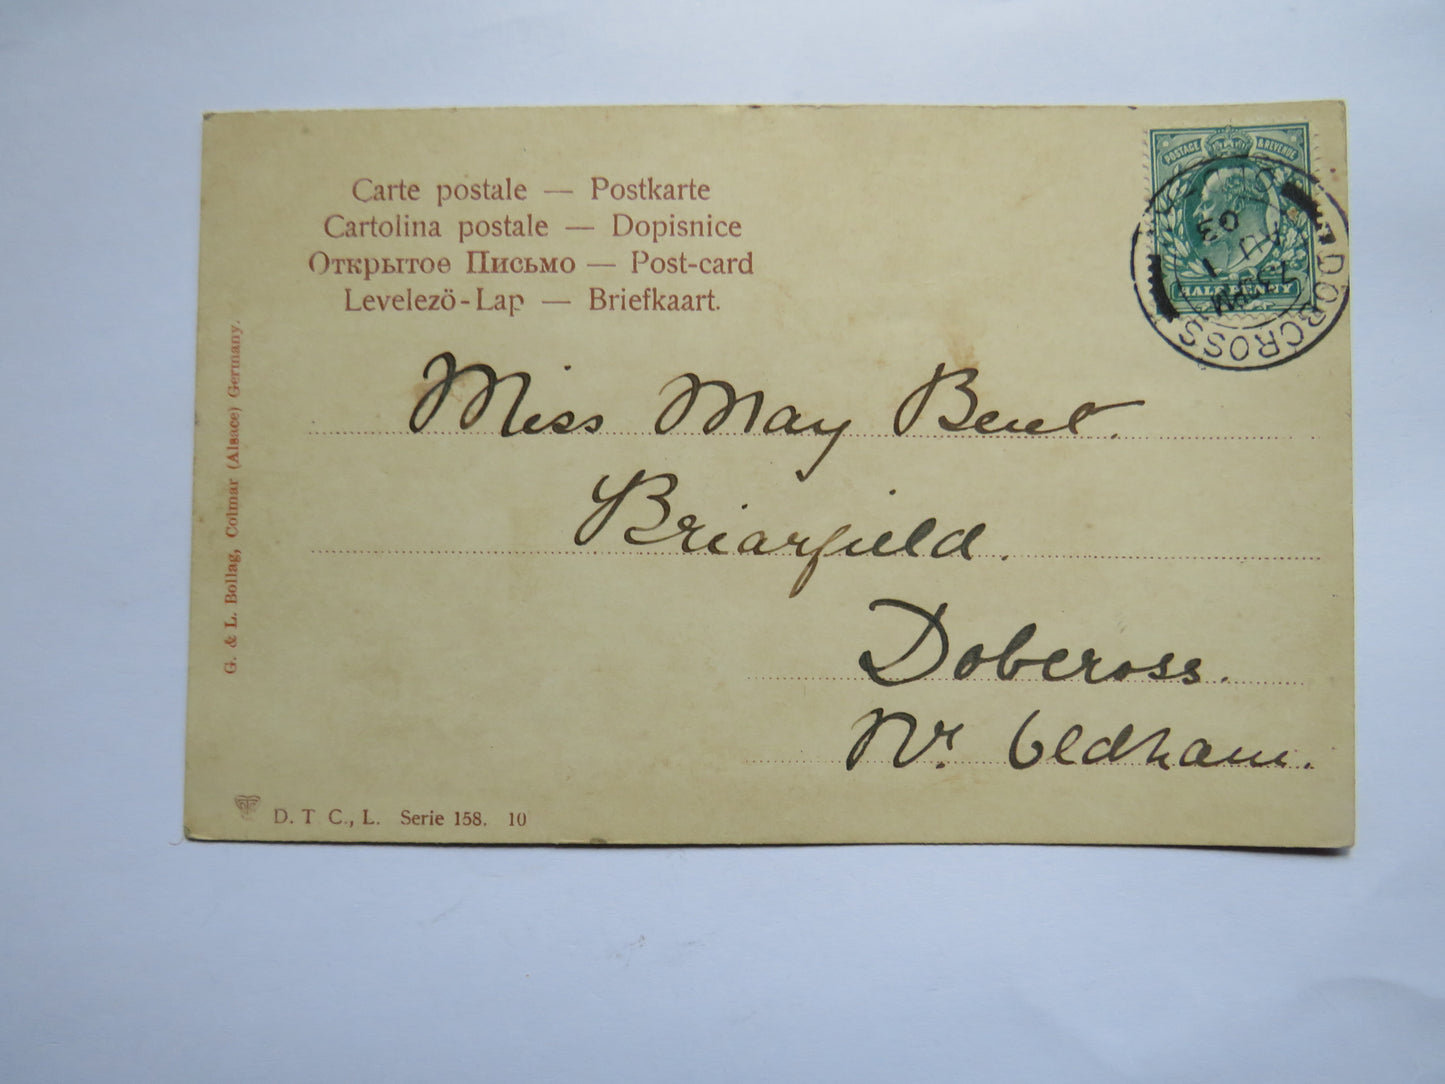 Carte postale — Postkarte
Cartolina postale — Dopisnice
Открытое Письмо — Post-card
Levelező-Lap — Briefkaart.
POSTAGE & REVENUE
HALFPENNY
DOBCROSS
7.30 PM
1
03
Miss May Bent.
Briarfield.
Dobcross.
Nr. Oldham.
G. & L. Bollag, Colmar (Alsace) Germany.
D. T C., L. Serie 158. 10